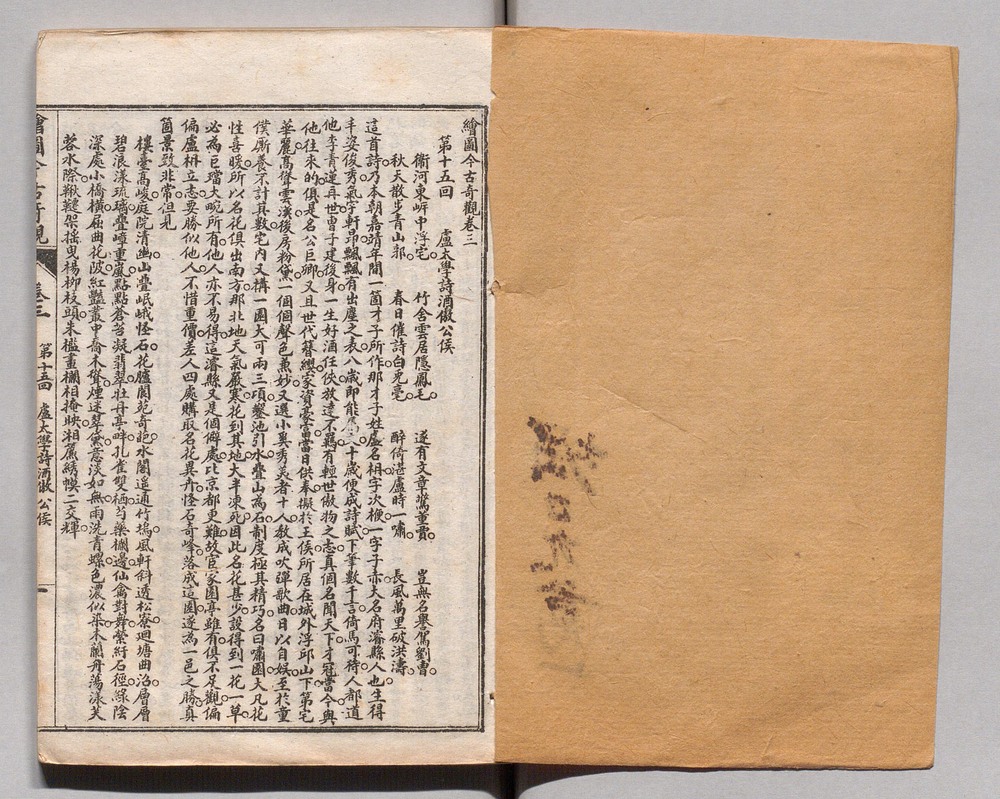 繪圖今古奇觀卷三
第十五回　盧太學詩酒傲公侯
衞河東岍中浮宅　竹舍雲居隱鳳毛　遂有文章驚董賈　豈無名譽駕劉曹
秋天散步青山郭　春日催詩白兎毫　醉倚湛盧時一嘯　長風萬里破洪濤
這首詩乃本朝嘉靖年間一箇才子所作那才子姓盧名柟字次楩一字子赤大名府濬縣人也生得
丰姿俊秀氣宇軒昻飄飄有出塵之表八歲即能屬文十歲便成詩賦下筆數千言倚馬可待人都道
他李青蓮再世曾子建後身一生好酒任俠放達不羈有輕世傲物之志真個名聞天下才冠當今與
他往來的俱是名公巨卿又且世代簪纓家資豪富當日供奉擬於王侯所居在城外浮邱山下第宅
華麗高聳雲漢後房粉黛一個個聲色兼妙又選小奚秀美者十人敎成吹彈歌曲日以自娛至於童
僕廝養不計其數宅內又構一園大可兩三頃鑿池引水疊山為石制度極其精巧名曰嘯園大凡花
性喜暖所以名花俱出南方那北地天氣嚴寒花到其地大半凍死因此名花甚少設得到一花一草
必為巨璫大畹所有他人亦不易得這濬縣又是個僻處比京都更難故宦家園亭雖有俱不足觀偏
偏盧柟立志要勝似他人不惜重價差人四處購取名花異卉怪石奇峰落成這園遂為一邑之勝真
箇景致非常但見
樓臺高峻庭院清幽山疊岷峨怪石花臚閬苑奇葩水閣遥通竹塢風軒斜透松寮迴塘曲洛層層
碧浪漾琉璃疊嶂重嵐點點蒼苔凝翡翠牡丹亭畔孔雀雙栖芍藥欄邊仙禽對舞縈紆石徑綠陰
深處小橋橫屈曲花陂紅豔叢中喬木聳煙迷翠黛意淡如無雨洗青螺色濃似染木蘭舟蕩漾芙
蓉水際鞦韆架摇曳楊柳枝頭朱檻畫欄相掩映湘簾綉幙二交輝
繪圖今古奇觀　卷三　第十五回　盧太學詩酒傲公侯　一